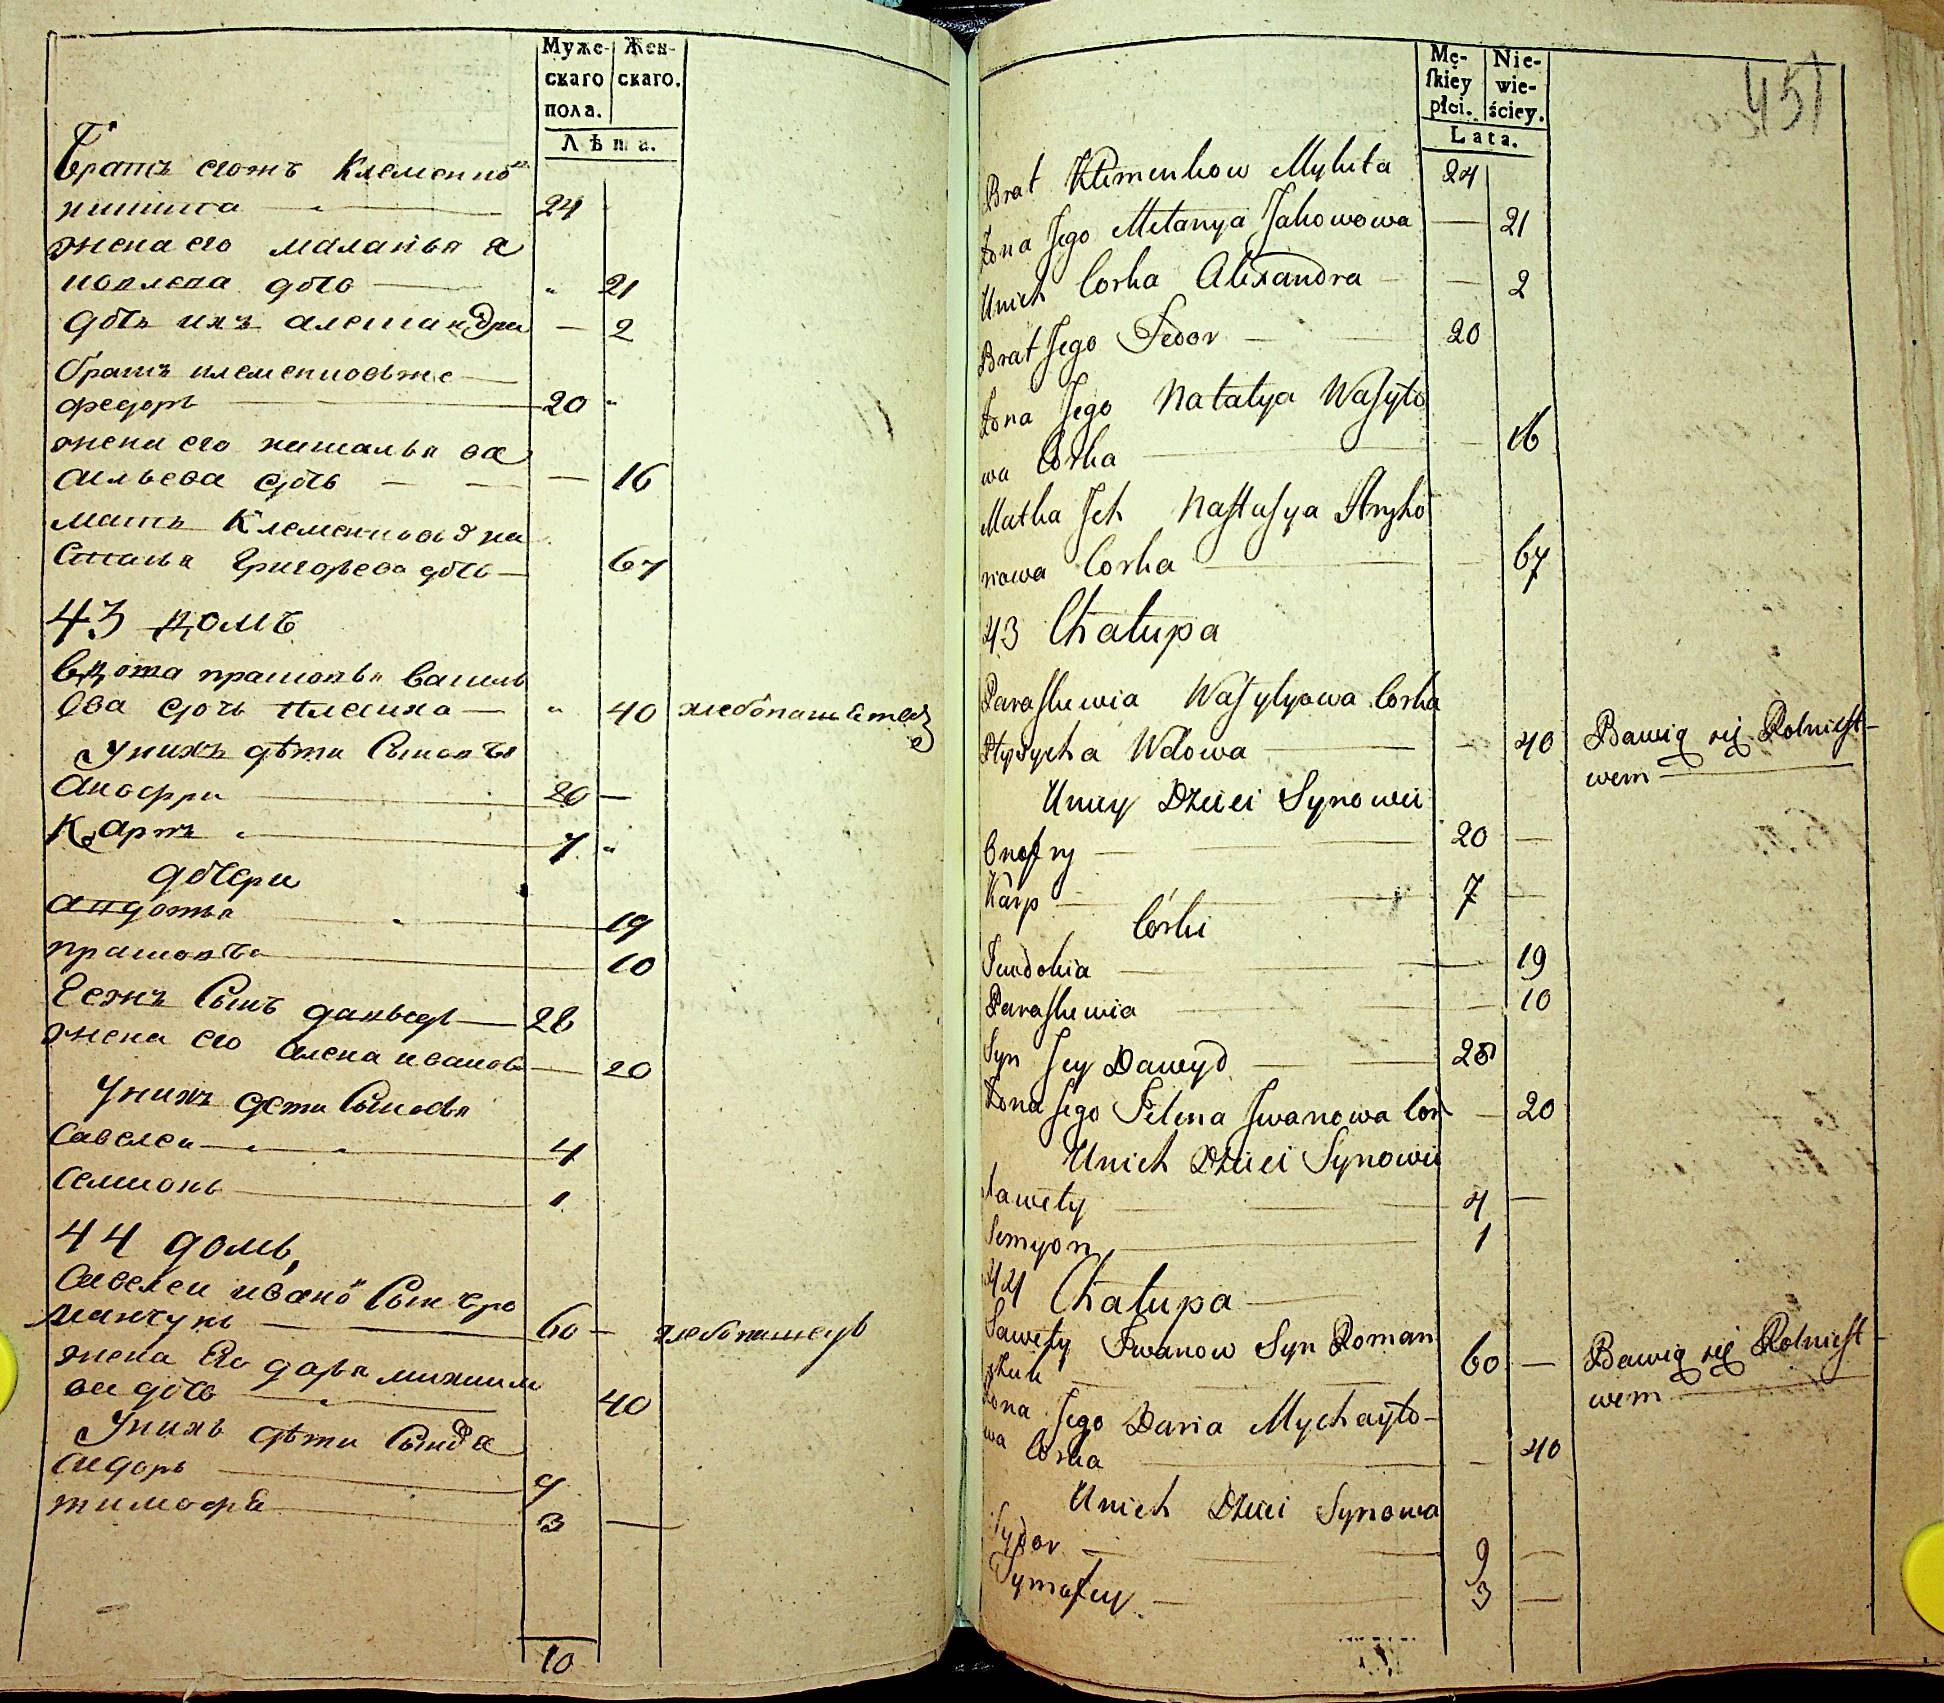 Муже-
скаго
пола.
Жен-
скаго.
Лѣта.
братъ егожъ Клементно
никита 24
жена его маланья я
ковлева дочь 21
дочь ихъ алешандра 2
братъ клементовъже
федоръ 20
жена его наталья ва
сильева дочь 16
мать Клементьова на
стасья Григорьева дочь 67
43 домъ
вдова прасковья василь
ева дочь 40 хлебопашествъ
у нихъ дѣти Сыновья
анофри 20
Карпъ 7
дочери
авдотья 19
прасковья 10
Ееже Сынъ давыдъ 28
жена его алена иванова 20
у нихъ дети Сыновья
савелей 4
семионъ 1
44 домъ,
савелей ивано Сынъ ро
манчукъ 60 хлебопашецъ
жена Его дарья михаило
ва дочь 40
у нихъ дѣти Сынова
сидоръ 9
тимофей 3
10
Mę-
skiey
płci.
Nie-
wie-
ściey.
Lata.
451
Brat Klimenkow Mykita 24
Żona Jego Melanya Jakowowa 21
Unich Corka Alexandra 2
Brat Jego Fedor 20
Żona Jego Natalya Wasyło
wa Corka 16
Matka Jch Nastasya Hryho
riowa Corka 67
43 Chałupa
Paraskewia Wasylyowa Corka
Wdowa 40 Bawią się Rolnicst-
wem
Uniey Dzieci Synowii
Onofry 20
Karp 7
Córki
Jewdokia 19
Paraskewia 10
Syn Jey Dawyd 28
Żona Jego Jelena Jwanowa Cor 20
Unich Dzieci Synowii
Sawely 4
Semyon 1
44 Chałupa
Sawely Jwanow Syn Roman
czuk 60 Bawią się Rolnicst-
wem
Żona Jego Daria Mychayło-
wa Corka 40
Unich Dzieci Synowa
Sydor 9
Tymofey 3